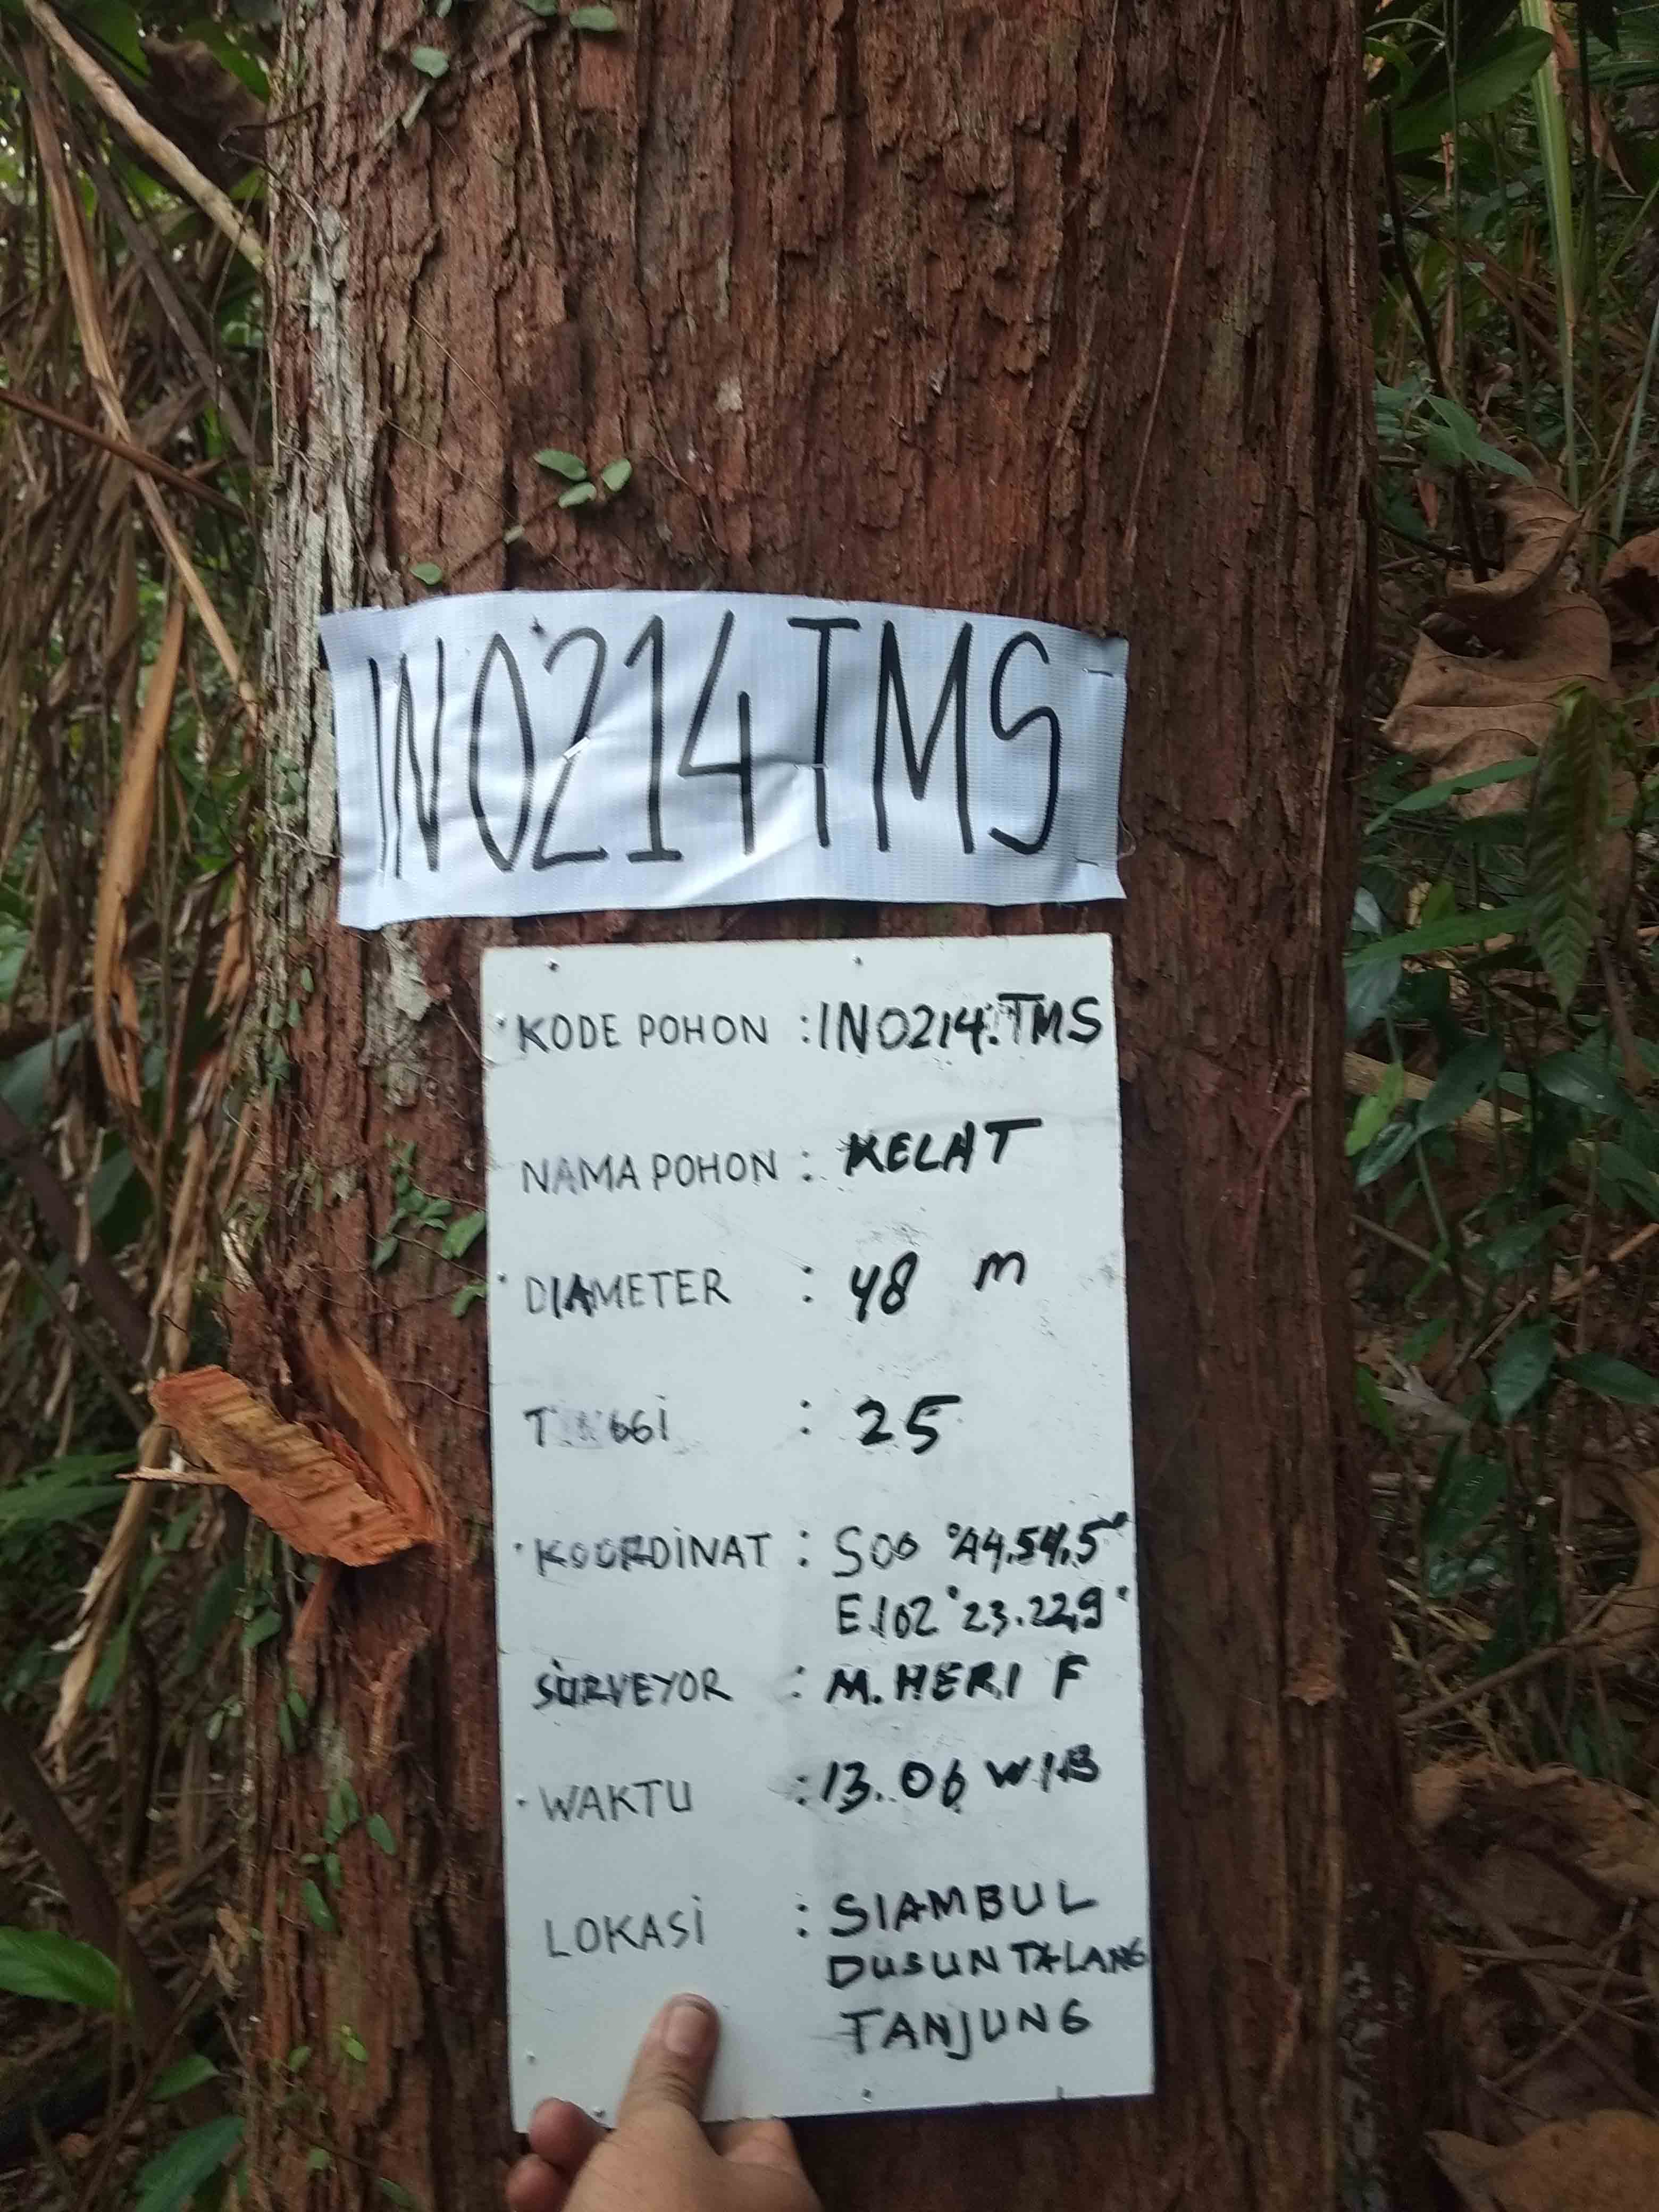 IN0214TMS
KODE POHON : IN0214.TMS
NAMA POHON : KELAT
DIAMETER : 48 m
TINGGI : 25
KOORDINAT : S00 °44.54,5"
E.102°23.22,9"
SURVEYOR : M. HERI F
WAKTU : 13.06 WIB
LOKASI : SIAMBUL
DUSUN TALANG
TANJUNG